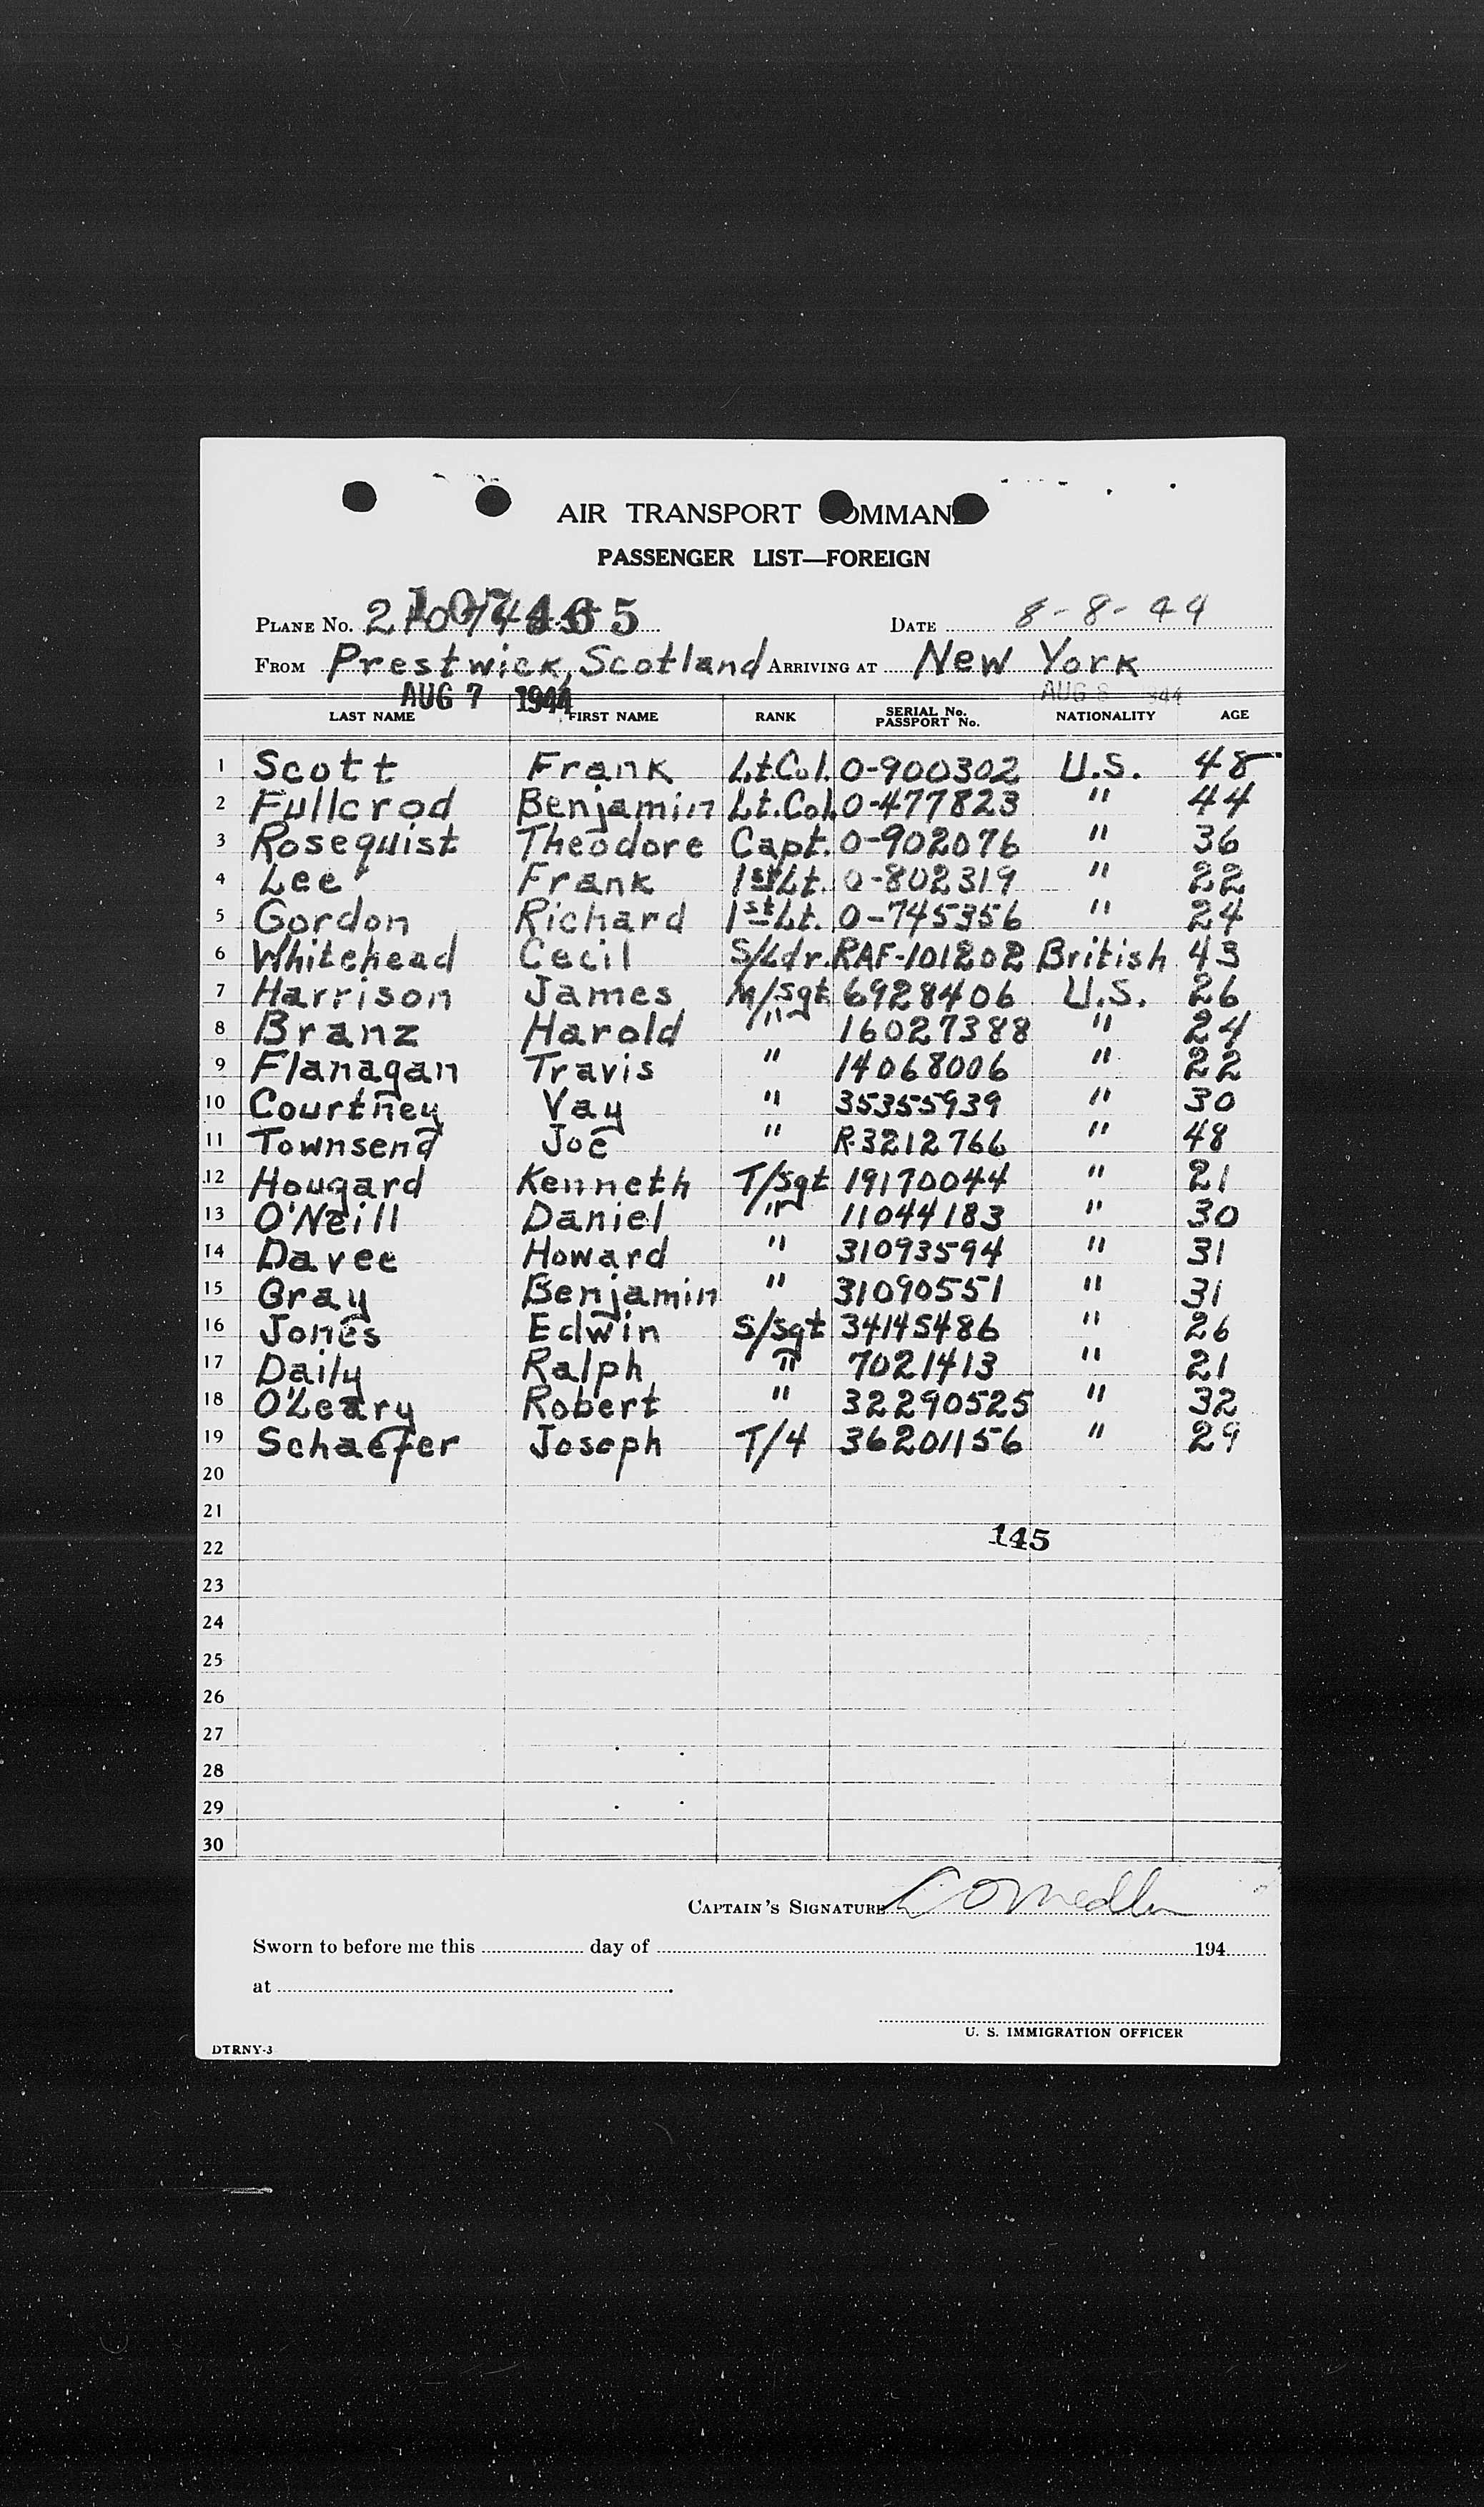 AIR TRANSPORT COMMAND
PASSENGER LIST—FOREIGN
PLANE No. DATE 8-8-44
FROM Prestwick, Scotland ARRIVING AT New York
AUG 7 1944 AUG 8 1944
LAST NAME FIRST NAME RANK SERIAL No. PASSPORT No. NATIONALITY AGE
1 Scott Frank Lt.Col. O-900302 U.S. 48
2 Fullerod Benjamin Lt.Col. O-477823 " 44
3 Rosequist Theodore Capt. O-902076 " 36
4 Lee Frank 1st Lt. O-802319 " 22
5 Gordon Richard 1st Lt. O-745356 " 24
6 Whitehead Cecil S/Ldr. RAF-101202 British 43
7 Harrison James M/Sgt 6928406 U.S. 26
8 Branz Harold " 16027388 " 24
9 Flanagan Travis " 14068006 " 22
10 Courtney Vay " 35355939 " 30
11 Townsend Joe " R-3212766 " 48
12 Hougard Kenneth T/Sgt 19170044 " 21
13 O'Neill Daniel " 11044183 " 30
14 Davee Howard " 31093594 " 31
15 Gray Benjamin " 31090551 " 31
16 Jones Edwin S/Sgt 34145486 " 26
17 Daily Ralph " 7021413 " 21
18 O'Leary Robert " 32290525 " 32
19 Schaefer Joseph T/4 36201156 " 29
20
21
22 145
23
24
25
26
27
28
29
30
CAPTAIN'S SIGNATURE
Sworn to before me this day of 194
at
U. S. IMMIGRATION OFFICER
DTRNY-3